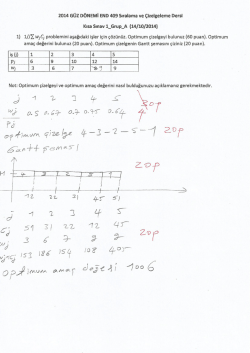 2014 GÜZ DÖNEMİ END 409 Sıralama ve Çizelgeleme Dersi
Kısa Sınav 1_Grup_A (14/10/2014)
1) 1//∑ wjCj problemini aşağıdaki işler için çözünüz. Optimum çizelgeyi bulunuz (60 puan). Optimum
amaç değerini bulunuz (20 puan). Optimum çizelgenin Gantt şemasını çiziniz (20 puan).
İş (j) 1 2 3 4 5
Pj 6 9 10 12 14
wj 3 6 7 9
Not: Optimum çizelgeyi ve optimum amaç değerini nasıl bulduğunuzu açıklamanız gerekmektedir.
j 1 2 3 4 5
0.5 0.67 0.7 0.75 0.64
optimum çizelge 4-3-2-5-1 20p
Gantt Şeması
20p
12 22 31 45 51
j 1 2 3 4 5
Cj 51 31 22 12 45
wj 3 6 7 9 9 20p
153 186 154 108 405
optimum amaç değeri 1006